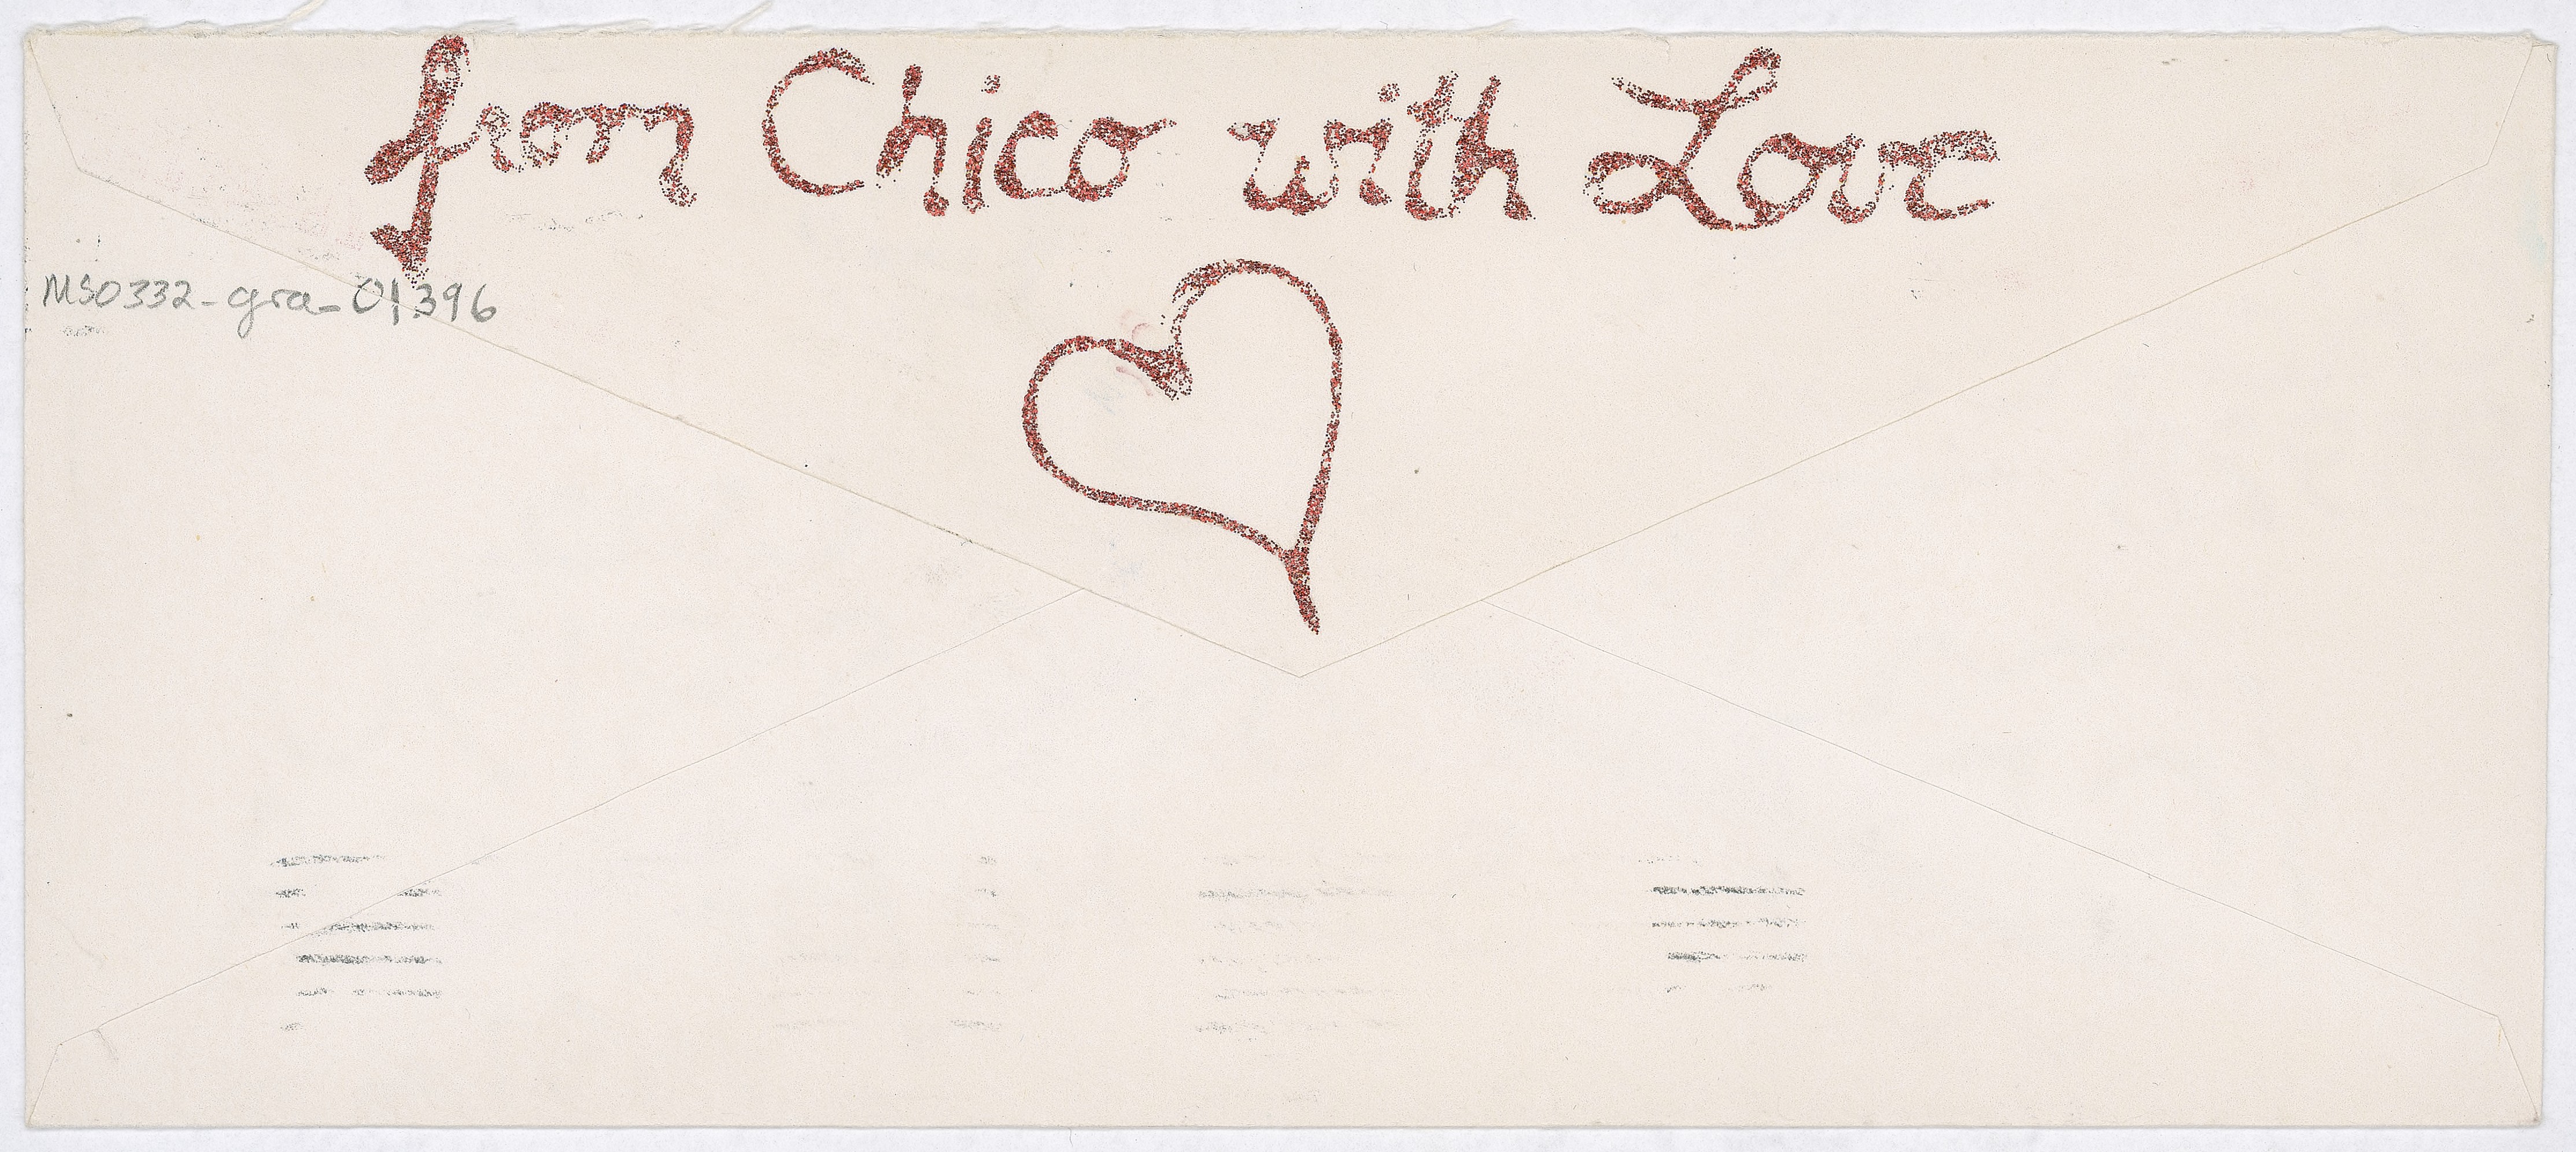 from Chico with Love
MS0332-gra-01396